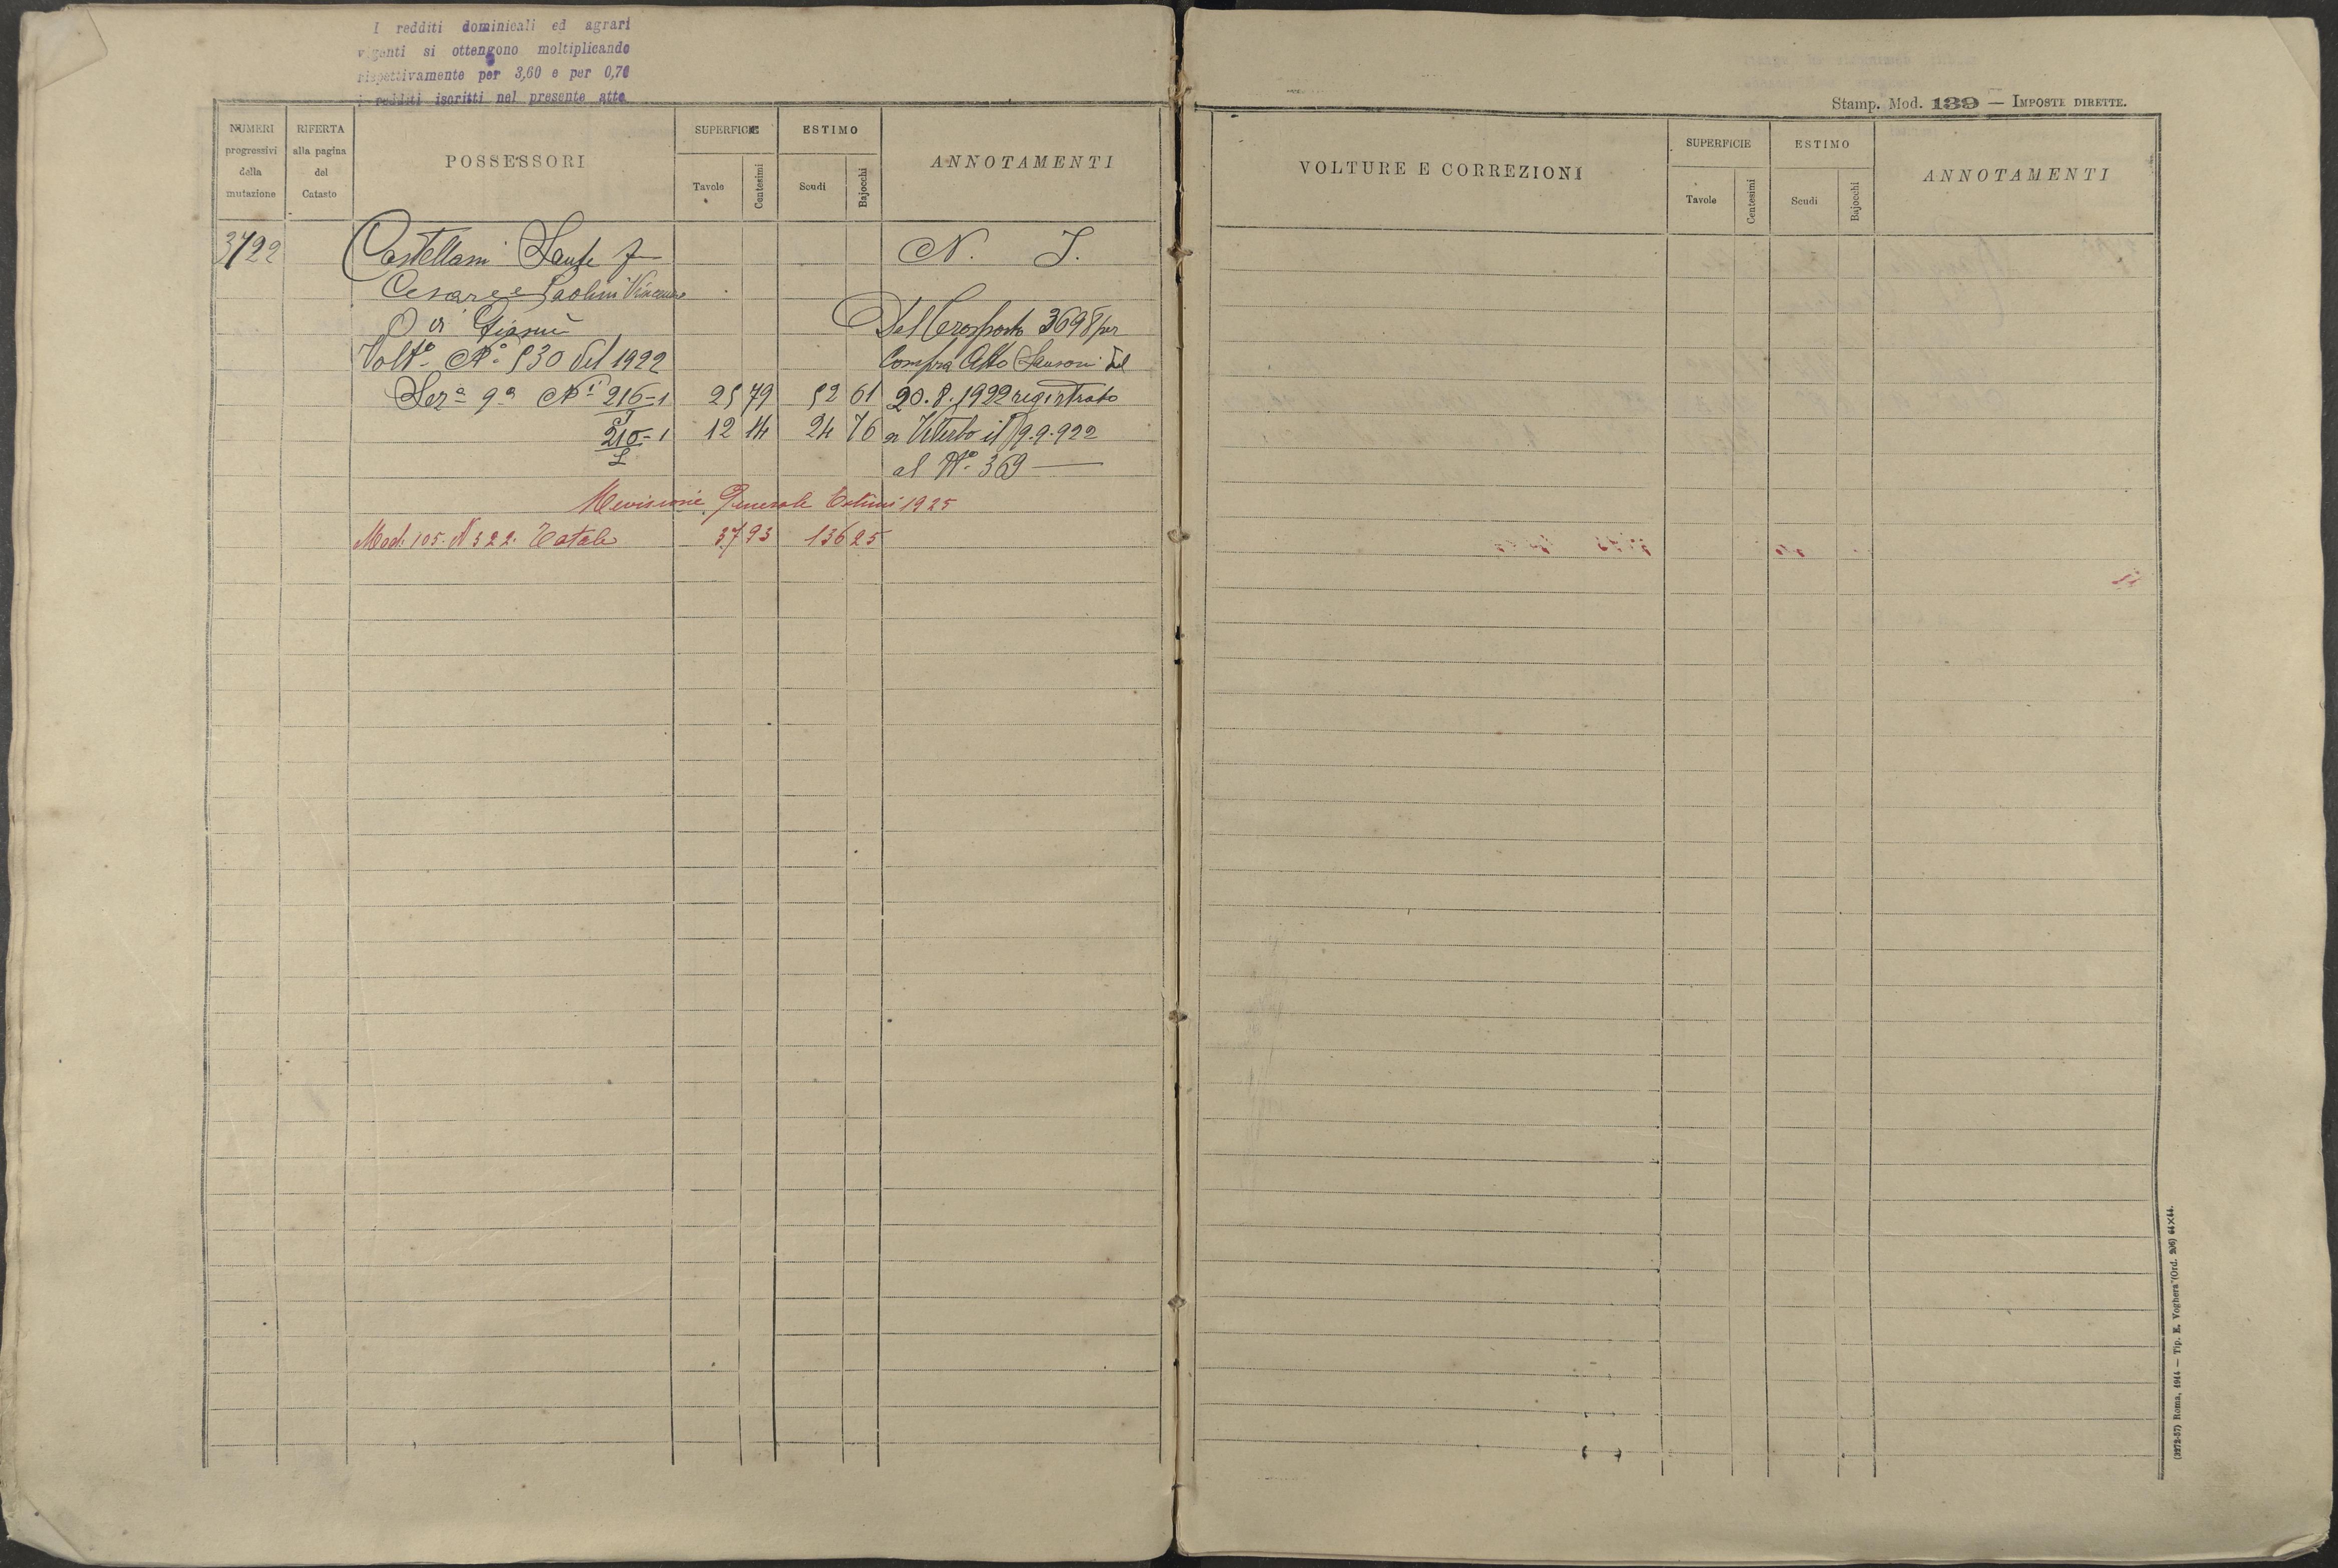 I redditi dominicali ed agrari
vigenti si ottengono moltiplicando
rispettivamente per 3,60 e per 0,70
i redditi iscritti nel presente atto
NUMERI progressivi della mutazione
RIFERTA alla pagina del Catasto
POSSESSORI
SUPERFICIE
Tavole
Centesimi
ESTIMO
Scudi
Bajocchi
ANNOTAMENTI
3722 Castellani Sante fu N. I.
Cesare e Paolini Vincenzo
Del Trasporto 3698 per
Volt.ª N.º 530 del 1922 Compra Atto Sansoni del
Sez.ª 9ª N.i 216-1 25 79 52 61 20.8.1922 registrato
210-1 12 14 24 76 a Viterbo il 9.9.922
al N.º 369
Revisione Generale Estimi 1925
Mod. 105. N 322. Totale 37 93 136 25
Stamp. Mod. 139 — IMPOSTE DIRETTE.
VOLTURE E CORREZIONI
SUPERFICIE
Tavole
Centesimi
ESTIMO
Scudi
Bajocchi
ANNOTAMENTI
(3272-57) Roma, 1914 — Tip. E. Voghera (Ord. 206) 64×44.